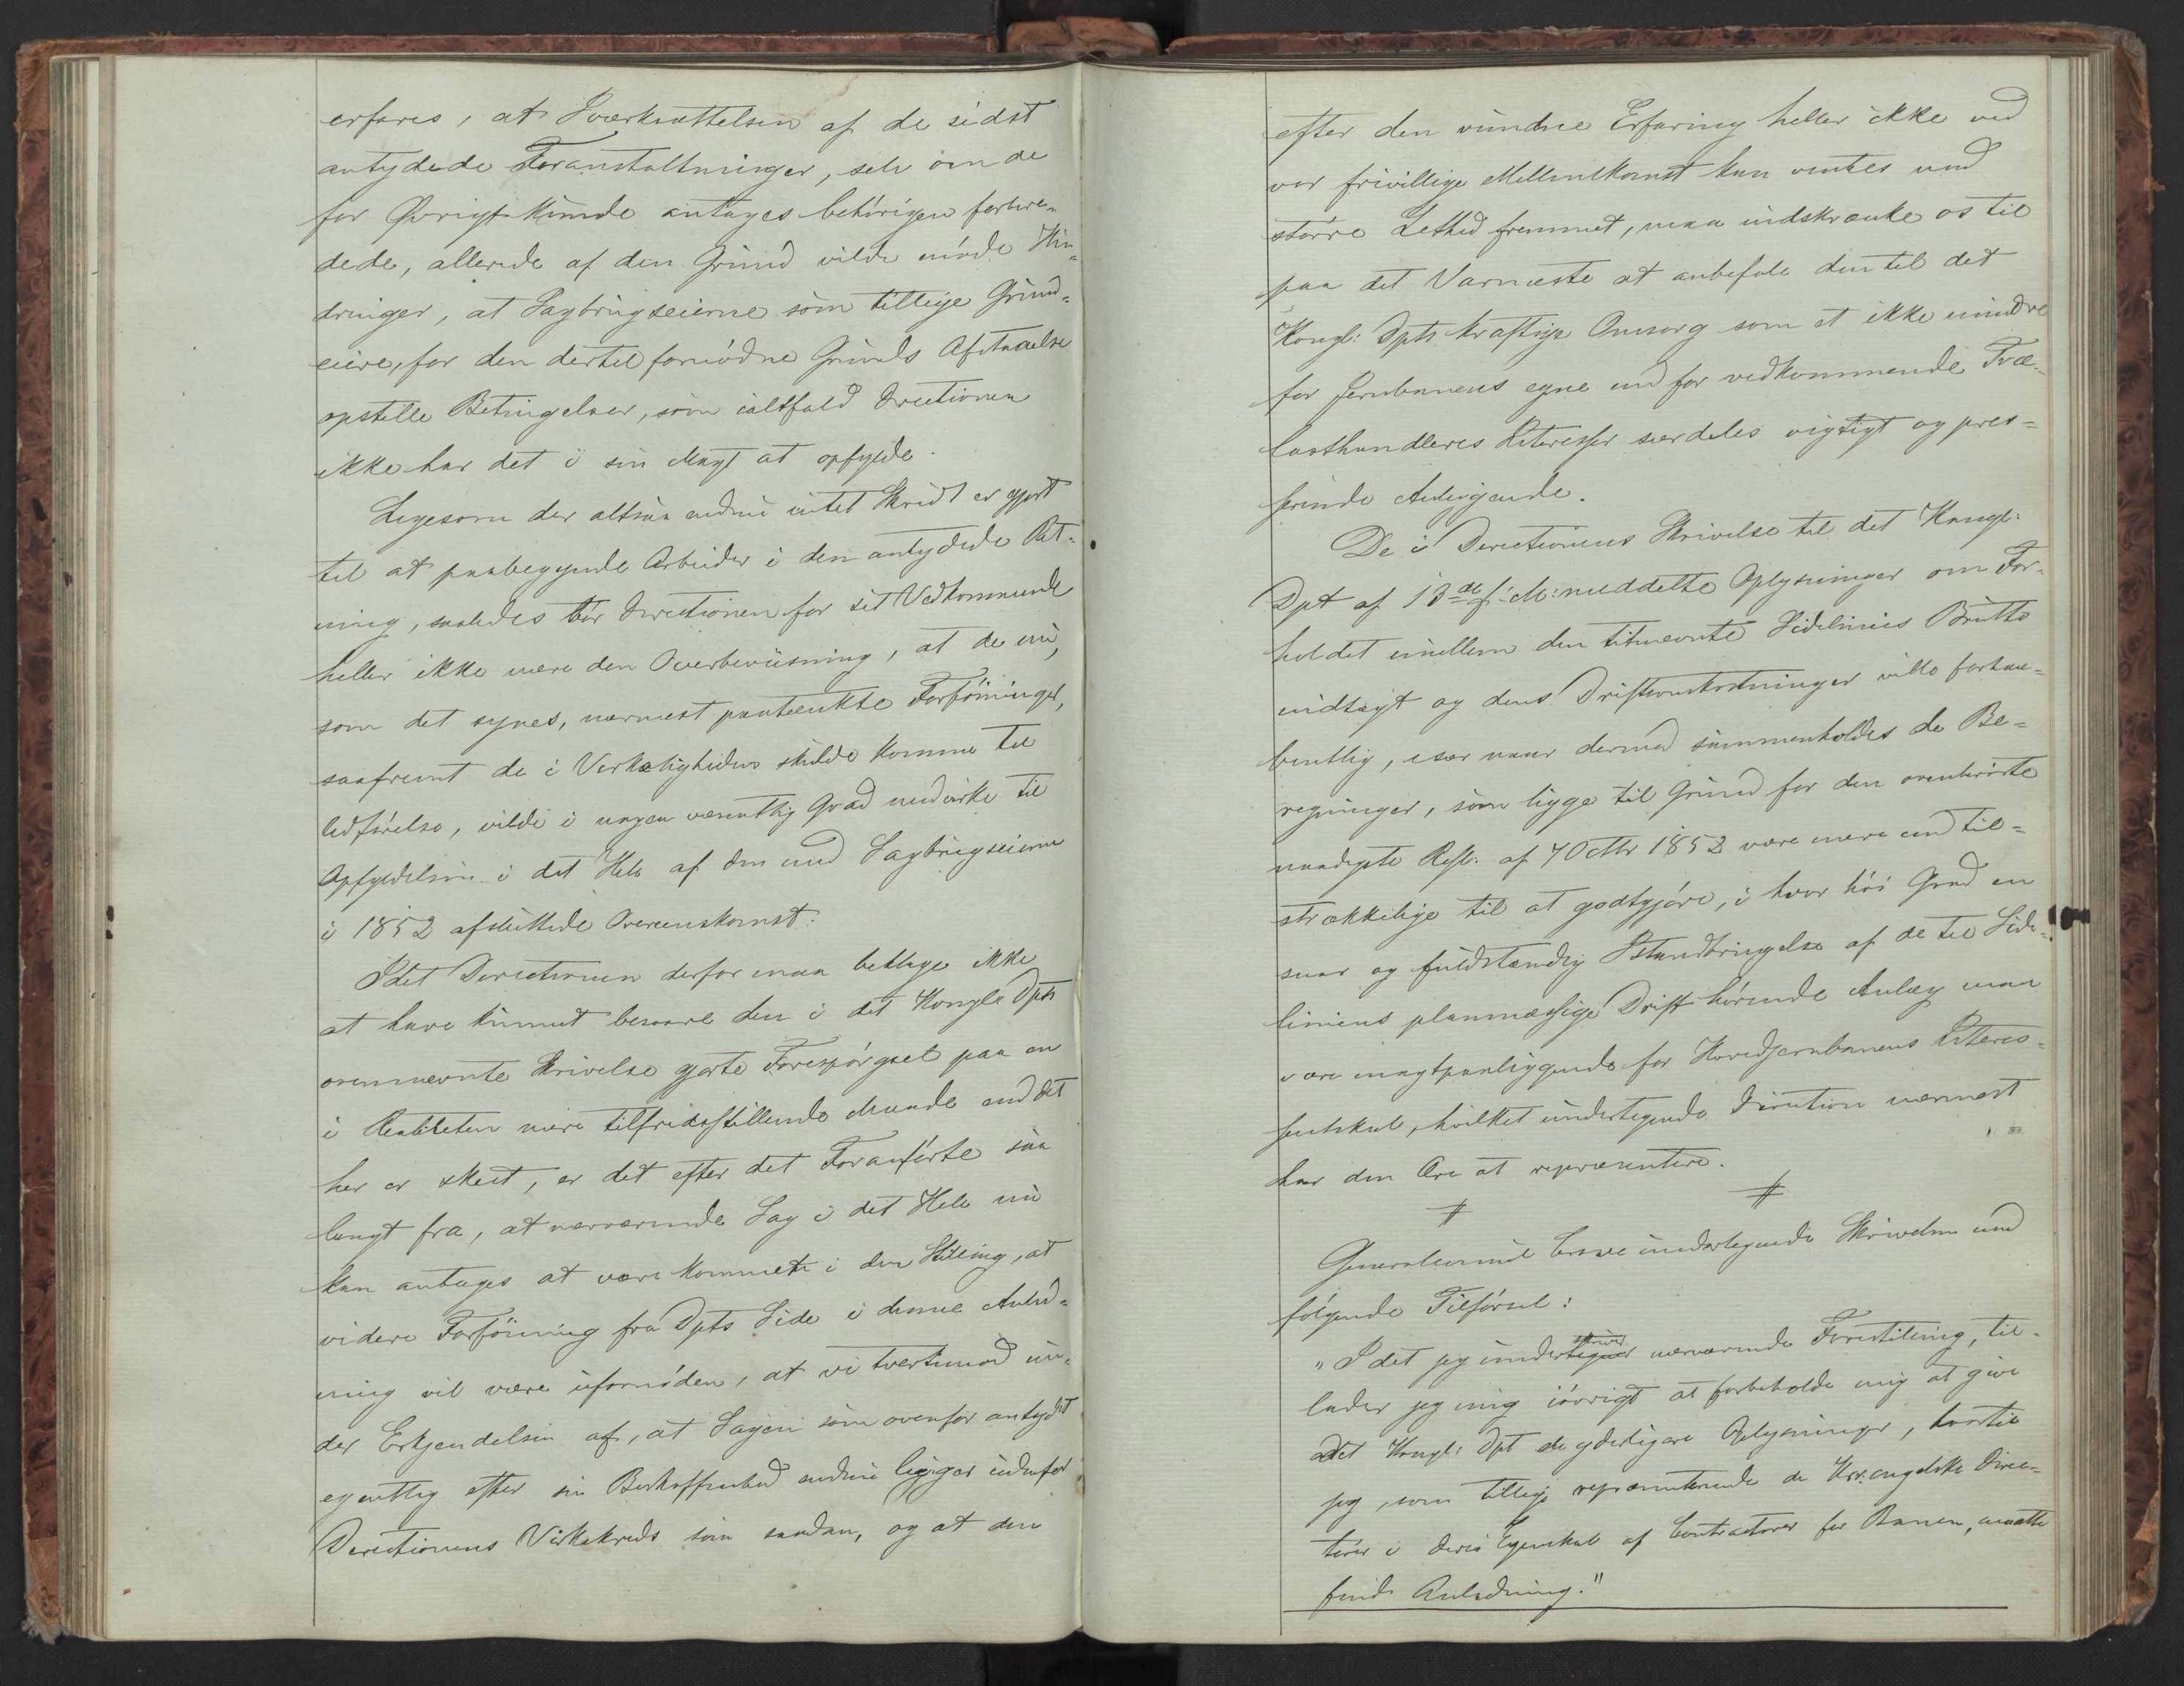 erfares, at Iværksættelsen af de sidst
antydede Foranstaltninger, selv om de
for Øvrigt kunde antages behørigen forbere-
dede, allerede af den Grund vilde møde Hin-
dringer, at Sagbrugseierne som tillige Grund-
eiere, for den dertil fornødne Grunds Afstaaelse
opstille Betingelser, som ialtfald Directionen
ikke har det i sin Magt at opfylde.
Ligesom der altsaa endnu intet Skridt er gjort
til at paabegynde Arbeider i den antydede Ret-
ning, saaledes tør Directionen for sit Vedkommende
heller ikke nære den Overbeviisning, at de nu,
som det synes, nærmest paatænkte Forføininger,
saafremt de i Virkeligheden skulde komme til
Udførelse, vilde i nogen væsentlig Grad medvirke til
Opfyldelsen i det Hele af den med Sagbrugseierne
i 1852 afsluttede Overeenskomst.
Idet Directionen derfor maa beklage ikke
at have kunnet besvare den i det Kongl: Dpts
ovennævnte Skrivelse gjorte Forespørgsel paa en
i Realiteten mere tilfredsstillende Maade end det
her er skeet, er det efter det Foranførte saa
langt fra, at nærværende Sag i det Hele nu
kan antages at være kommet i den Stilling, at
videre Forføining fra Dpts Side i denne Anled-
ning vil være ufornøden, at vi tvertimod un-
der Erkjendelsen af, at Sagen som ovenfor antydet
egentlig efter sin Beskaffenhed endnu ligger udenfor
Directionens Virkekreds som saadan, og at den
efter den vundne Erfaring heller ikke ved
vor frivillige Mellemkomst kan ventes med
større Lethed fremmet, maa indskrænke os til
paa det Varmeste at anbefale den til det
Kongl: Dpts kraftige Omsorg som et ikke mindre
for Jernbanens egne end for vedkommende Træ-
lasthandleres Interesser særdeles vigtigt og pres-
serende Anliggende.
De i Directionens Skrivelse til det Kongl:
Dpt af 13de f: M: meddelte Oplysninger om For-
holdet imellem den titnævnte Sidelinies Brutto
indtægt og dens Driftsomkostninger ville forhaa-
bentlig, især naar dermed sammenholdes de Be-
regninger, som ligge til Grund for den ovenberørte
naadigste Resl. af 7 Octbr 1852 være mere end til-
strækkelige til at godtgjøre, i hvor høi Grad en
snar og fuldstændig Istandbringelse af de til Side-
liniens planmæssige Drift hørende Anlæg maa
være magtpaaliggende for Hovedjernbanens Interes-
sentskab, hvilket undertegnede Direction nærmest
har den Ære at repræsentere.
Generalconsul Crowe undertegnede Skrivelsen med
følgende Tilførsel:
"Idet jeg underskriver nærværende Forestilling, til-
lader jeg mig iøvrigt at forbeholde mig at give
det Kongl: Dpt de yderligere Oplysninger, hvortil
jeg, som tillige repræsenterende de Hrr. engelske Direc-
tører i deres Egenskab af Contractører for Banen, maatte
finde Anledning."